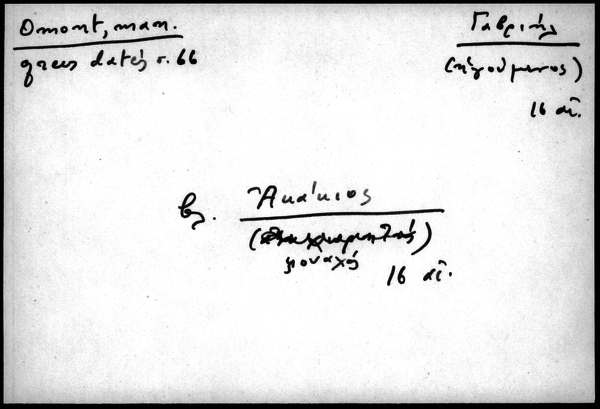 Omont, man.
grecs datés σ. 66
Γαβριήλ
(ἡγούμενος)
16 αἰ.
βλ. Ἀκάκιος
μοναχός
16 αἰ.